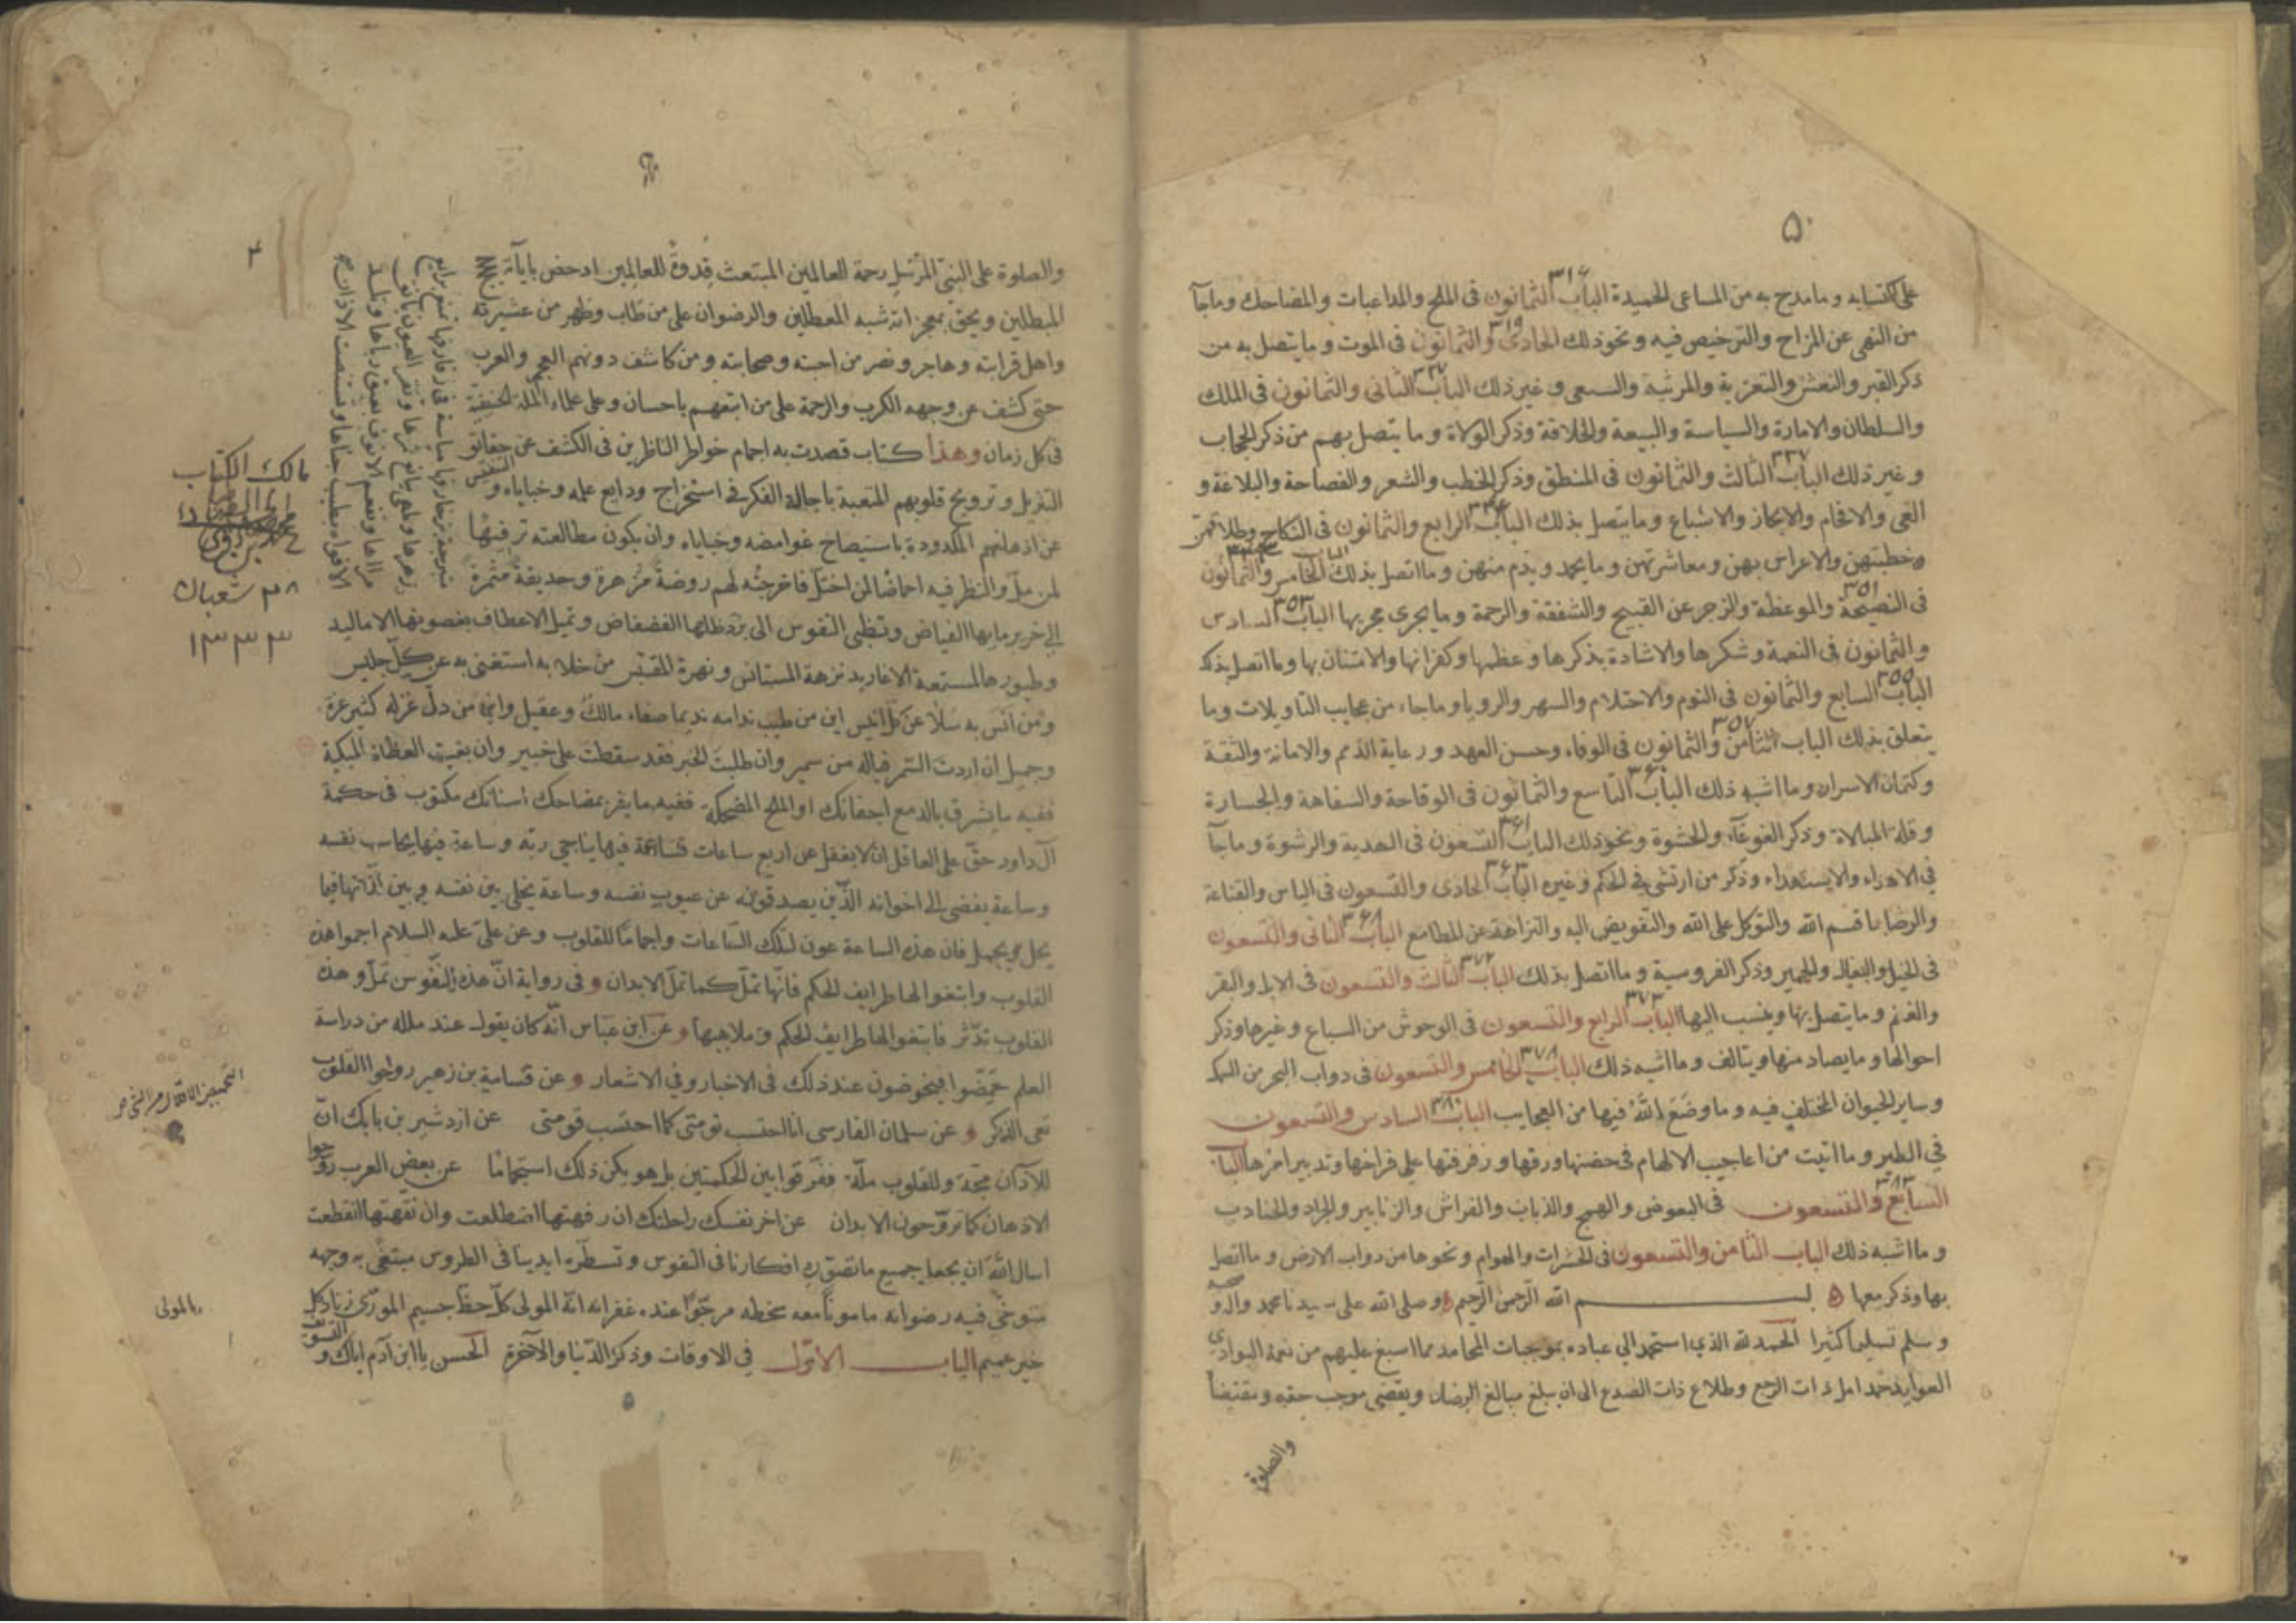 ٥٠
على اكتسابه وما مدح به من المساعى الحميدة الباب الثمانون فى الملح والمداعبات والمضاحك وما جآ
٣١٤
من النهى عن المزاح والترخيص فيه ونحو ذلك الحادى والثمانون فى الموت وما يتصل به من
ذكر القبر والنعش والتعزية والمرثية والنعى وغير ذلك الباب الثانى والثمانون فى الملك
والسلطان والامارة والسياسة والبيعة والخلافة وذكر الولاة وما يتصل بهم من ذكر الحجاب
وغير ذلك الباب الثالث والثمانون فى المنطق وذكر الخطب والشعر والفصاحة والبلاغة و
٣٢٧
العى والافحام والايجاز والاشباع وما يتصل بذلك الباب الرابع والثمانون فى النكاح وطلاقهن
وخطبتهن والاعراس بهن ومعاشرتهن وما يحمد ويذم منهن وما اتصل بذلك الباب الخامس والثمانون
فى النصيحة والموعظة والزجر عن القبيح والشفقة والرحمة وما يجرى مجريها الباب السادس
٣٥١ ٣٥٣
والثمانون فى النعمة وشكرها والاشادة بذكرها وعظمها وكفرانها والامتنان بها وما اتصل بذلك
الباب السابع والثمانون فى النوم والاحتلام والسهر والرويا وما جاء من عجايب التاويلات وما
٣٥٥
يتعلق بذلك الباب الثامن والثمانون فى الوفاء وحسن العهد ورعاية الذمم والامانة والثقة
٣٥٧
وكتمان الاسرار وما اشبه ذلك الباب التاسع والثمانون فى الوقاحة والسفاهة والجسارة
٣٦٠
وقلة المبالاة وذكر الغوغآء والحشوة ونحو ذلك الباب التسعون فى الهدية والرشوة وما جآ
٣٦١
في الاهداء والاستهداء وذكر من ارتشى فى الحكم وغيره الباب الحادى والتسعون فى الياس والقناعة
٣٦٣
والرضا بما قسم الله والتوكل على الله والتفويض اليه والنزاهة عن المطامع الباب الثانى والتسعون
٣٦٨
فى الخيل والبغال والحمير وذكر الفروسية وما اتصل بذلك الباب الثالث والتسعون فى الابل والبقر
٣٧٢
والغنم وما يتصل بها وينسب اليها الباب الرابع والتسعون فى الوحوش من السباع وغيرها وذكر
٣٧٣
احوالها وما يصاد منها ويتالف وما اشبه ذلك الباب الخامس والتسعون فى دواب البحر من السمك
٣٧٨
وساير الحيوان المختلف فيه وما وضع الله فيها من العجايب الباب السادس والتسعون
٣٨٠
في الطير وما اتيت من اعاجيب الالهام فى حضنها وزقها ورفرفتها على فراخها وتدبير امرها الباب
السابع والتسعون فى البعوض والهمج والذباب والفراش والزنابير والجراد والجنادب
٣٨٣
وما اشبه ذلك الباب الثامن والتسعون فى الحشرات والهوام ونحوها من دواب الارض وما اتصل
بها وذكر معها بسم الله الرحمن الرحيم وصلى الله على سيدنا محمد واله و
وسلم تسليما كثيرا الحمد لله الذي استحمد الي عباده بموجبات المحامد مما اسبغ عليهم من نعمه البوادي
العوايد حمدا مل ذات الرجع وطلاع ذات الصدع الى ان يبلغ مبالغ الرضا ويقضى موجب حقه ومقتضا
والصلوة
٤
والصلوة على النبى المرسل رحمة للعالمين المبتعث قدوة للعالمين ادحض باياته
المبطلين ويحق بمعجزاته شبه المعطلين والرضوان على من طاب وطهر من عشيرته
واهل قرابته وهاجر ونصر من احبته وصحابته ومن كاشف دونهم العجم والعرب
حتى كشف عن وجهه الكرب والرحمة على من اتبعهم باحسان وعلى علماء الملة الحنيفة
فى كل زمان وهذا كتاب قصدت به اجمام خواطر الناظرين فى الكشف عن حقائق
التنزيل وترويح قلوبهم المتعبة باجالة الفكر فى استخراج ودايع علمه وخباياه والتنفيس
عن اذهانهم المكدودة باستيضاح غوامضه وخباياه وان يكون مطالعته ترفيها
لمن مل والنظر فيه احماضا لمن اختل فاخرجته لهم روضة مزهرة وحديقة مثمرة
متبرجة بزخارفها مياسة فى زفارفها تمتع برايع
زهرها وتلهى بيانع ثمرها وتقر العيون بانيق
مراها وتنعم الانوف بعبق رياها وتلذ
الافواه بطيب جناها وتستنصت الاذان
الى خرير مايها الفياض وتطبى النفوس الى برد ظلها الفضفاض وتميل الاعطاف بغصونها الاماليد
وطيورها المستمعة الاغاريد نزهة المستانس ونهزة المقتبس من خلا به استغنى به عن كل جليس
ومن انس به سلا عن كل انيس اين من طيب ندامه نديما صفاء مالك وعقيل واين من دل غزله كثير عزة
وجميل ان اردت السمر فياله من سمير وان طلبت الخبر فقد سقطت على خبير وان بغيت العظاة المبكية
ففيه ما يشرق بالدمع اجفانك او الملح المضحكة ففيه ما يفر بمضاحك اسنانك مكتوب فى حكمة
آل داود حق على العاقل ان لا يغفل عن اربع ساعات فساعة فيها يناجى ربه وساعة فيها يحاسب نفسه
وساعة يفضى الى اخوانه الذين يصدقونه عن عيوب نفسه وساعة يخلى بين نفسه وبين لذاتها فيما
يحل ويجمل فان هذه الساعة عون لتلك الساعات واجماما للقلوب وعن على عليه السلام اجموا هذه
القلوب وابتغوا لها طرايف الحكم فانها تمل كما تمل الابدان وفى رواية ان هذه النفوس تمل وهذه
القلوب تدثر فابتغوا لها طرايف الحكم وملاهيها وعن ابن عباس انه كان يقول عند ملله من دراسة
العلم حمضوا فيخوضون عند ذلك فى الاخبار وفي الاشعار وعن قسامة بن زهير روحوا القلوب
تعى الذكر وعن سلمان الفارسى انا احتسب نومتى كما احتسب قومتى عن ازدشير بن بابك ان
للآذان مجة وللقلوب ملة ففرقوا بين الحكمتين بل هو يكن ذلك استجماما عن بعض العرب روحوا
الاذهان كما تروحون الابدان عن اخر نفسك راحلتك ان رفهتها اضطلعت وان نفهتها انقطعت
اسال الله ان يجعل جميع ما تصرف افكارنا فى النفوس وتسطره ايدينا فى الطروس مبتغى به وجهه
متوخى فيه رضوانه مامونا معه سخطه مرجوا عنده غفرانه انه المولى كل حظ جسيم المورى زناد كل
خير عميم الباب الاول في الاوقات وذكر الدنيا والآخرة الحسن يا ابن آدم اياك والتسويف
مالك الكتاب
٢٨ شعبان
١٣٣٣